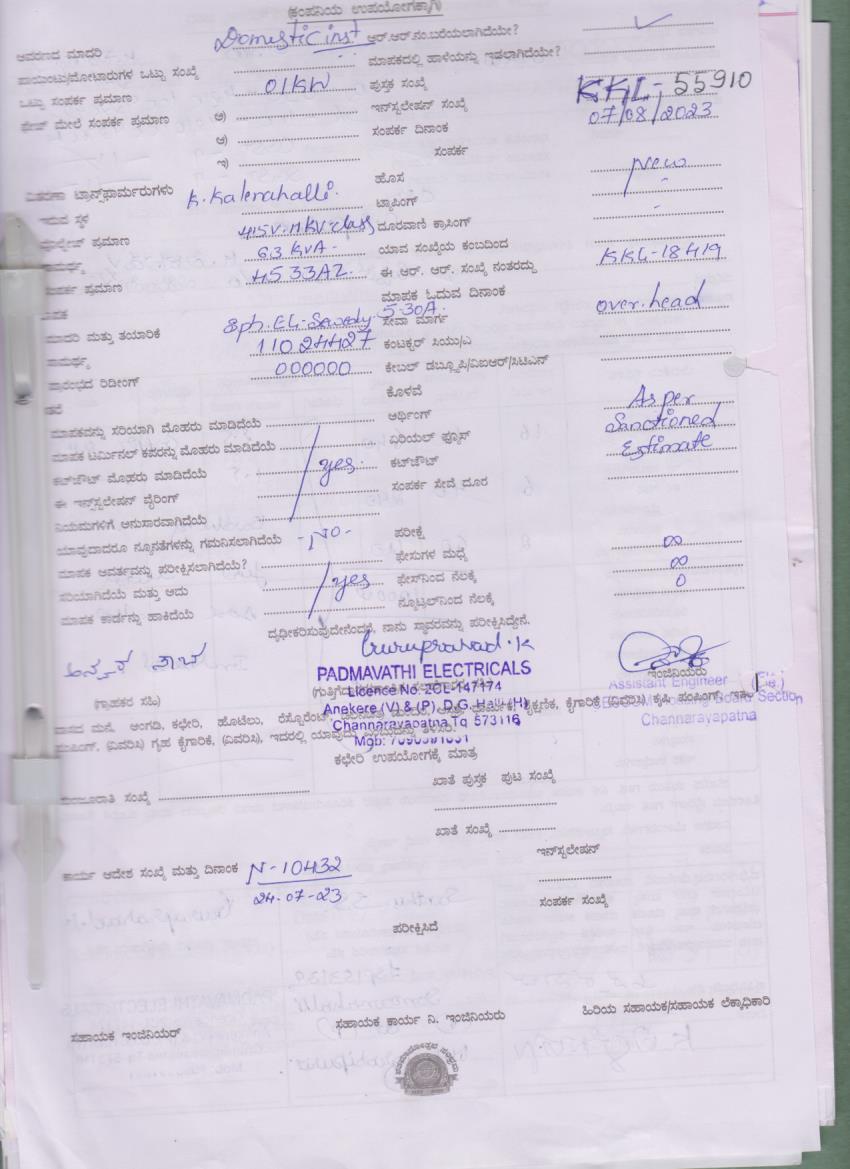 (ಕಂಪನಿಯ ಉಪಯೋಗಕ್ಕಾಗಿ)
ಆವರಣದ ಮಾದರಿ Domestic inst ಆರ್.ಆರ್.ನಂ.ಬರೆಯಲಾಗಿದೆಯೇ?
ಪಾಯಿಂಟು/ಮೋಟಾರುಗಳ ಒಟ್ಟು ಸಂಖ್ಯೆ ಮಾಪಕದಲ್ಲಿ ಹಾಳೆಯನ್ನು ಇಡಲಾಗಿದೆಯೇ?
ಒಟ್ಟು ಸಂಪರ್ಕ ಪ್ರಮಾಣ 01KW ಪುಸ್ತಕ ಸಂಖ್ಯೆ
ಫೇಜ್ ಮೇಲೆ ಸಂಪರ್ಕ ಪ್ರಮಾಣ ಅ) ಇನ್‌ಸ್ಟಲೇಷನ್ ಸಂಖ್ಯೆ KKL-55910
ಆ) ಸಂಪರ್ಕ ದಿನಾಂಕ 07/08/2023
ಇ) ಸಂಪರ್ಕ
ವಿತರಣಾ ಟ್ರಾನ್ಸ್‌ಫಾರ್ಮರುಗಳು K.Kalenahalli. ಹೊಸ New
ಇರುವ ಸ್ಥಳ ಟ್ಯಾಪಿಂಗ್ -
ಪ್ರಮಾಣ 415V-11KV-class ದೂರವಾಣಿ ಕ್ರಾಸಿಂಗ್ -
63 KVA - ಯಾವ ಸಂಖ್ಯೆಯ ಕಂಬದಿಂದ
ಪ್ರಮಾಣ 4533AZ. ಈ ಆರ್. ಆರ್. ಸಂಖ್ಯೆ ನಂತರದ್ದು KKL-18419
ಮಾಪಕ ಓದುವ ದಿನಾಂಕ
ಮಾದರಿ ಮತ್ತು ತಯಾರಿಕೆ 5-30A. ಸೇವಾ ಮಾರ್ಗ over.head
11024427 ಕಂಟಕ್ಟರ್ ಸಿಯು/ಎ
ಪ್ರಾರಂಭದ ರಿಡೀಂಗ್ 000000 ಕೇಬಲ್ ಡಬ್ಲ್ಯೂಪಿ/ವಿಐಆರ್/ಸಿಟಿಎಸ್
ಕೊಳವೆ
ಮಾಪಕವನ್ನು ಸರಿಯಾಗಿ ಮೊಹರು ಮಾಡಿದೆಯೆ ಆರ್ಥಿಂಗ್ As per
ಮಾಪಕ ಟರ್ಮಿನಲ್ ಕಪರನ್ನು ಮೊಹರು ಮಾಡಿದೆಯೆ ಏರಿಯಲ್ ಫ್ಯೂಸ್ Sanctioned
ಕಟ್‌ಔಟ್ ಮೊಹರು ಮಾಡಿದೆಯೆ yes. ಕಟ್‌ಔಟ್ Estimate
ಈ ಇನ್‌ಸ್ಟಲೇಷನ್ ವೈರಿಂಗ್ ಸಂಪರ್ಕ ಸೇವೆ ದೂರ
ನಿಯಮಗಳಿಗೆ ಅನುಸಾರವಾಗಿದೆಯೆ
ಯಾವುದಾದರೂ ನ್ಯೂನತೆಗಳನ್ನು ಗಮನಿಸಲಾಗಿದೆಯೆ - No - ಪರೀಕ್ಷೆ
ಮಾಪಕ ಆವರ್ತವನ್ನು ಪರೀಕ್ಷಿಸಲಾಗಿದೆಯೆ? ಫೇಸುಗಳ ಮಧ್ಯೆ ∞
ಸರಿಯಾಗಿದೆಯೆ ಮತ್ತು ಅದು yes ಫೇಸ್‌ನಿಂದ ನೆಲಕ್ಕೆ ∞
ಮಾಪಕ ಕಾರ್ಡನ್ನು ಹಾಕಿದೆಯೆ ನ್ಯೂಟ್ರಲ್‌ನಿಂದ ನೆಲಕ್ಕೆ 0
ದೃಢೀಕರಿಸುವುದೇನೆಂದರೆ, ನಾನು ಸ್ಥಾವರವನ್ನು ಪರೀಕ್ಷಿಸಿದ್ದೇನೆ.
Guruprasad.K
PADMAVATHI ELECTRICALS ಇಂಜಿನಿಯರು
Licence No. 2CL-147174 Assistant Engineer (Ele.)
(ಗ್ರಾಹಕರ ಸಹಿ) Anekere (V) & (P), D.G. Halli (H) Section
Channarayapatna Tq 573116 Channarayapatna
ಕಛೇರಿ ಉಪಯೋಗಕ್ಕೆ ಮಾತ್ರ
ಮಂಜೂರಾತಿ ಸಂಖ್ಯೆ ಖಾತೆ ಪುಸ್ತಕ ಪುಟ ಸಂಖ್ಯೆ
ಖಾತೆ ಸಂಖ್ಯೆ
ಕಾರ್ಯ ಆದೇಶ ಸಂಖ್ಯೆ ಮತ್ತು ದಿನಾಂಕ N-10432 ಇನ್‌ಸ್ಟಲೇಷನ್
24-07-23 ಸಂಪರ್ಕ ಸಂಖ್ಯೆ
ಪರೀಕ್ಷಿಸಿದೆ
ಸಹಾಯಕ ಇಂಜಿನಿಯರ್ ಸಹಾಯಕ ಕಾರ್ಯ ನಿ. ಇಂಜಿನಿಯರು ಹಿರಿಯ ಸಹಾಯಕ/ಸಹಾಯಕ ಲೆಕ್ಕಾಧಿಕಾರಿ